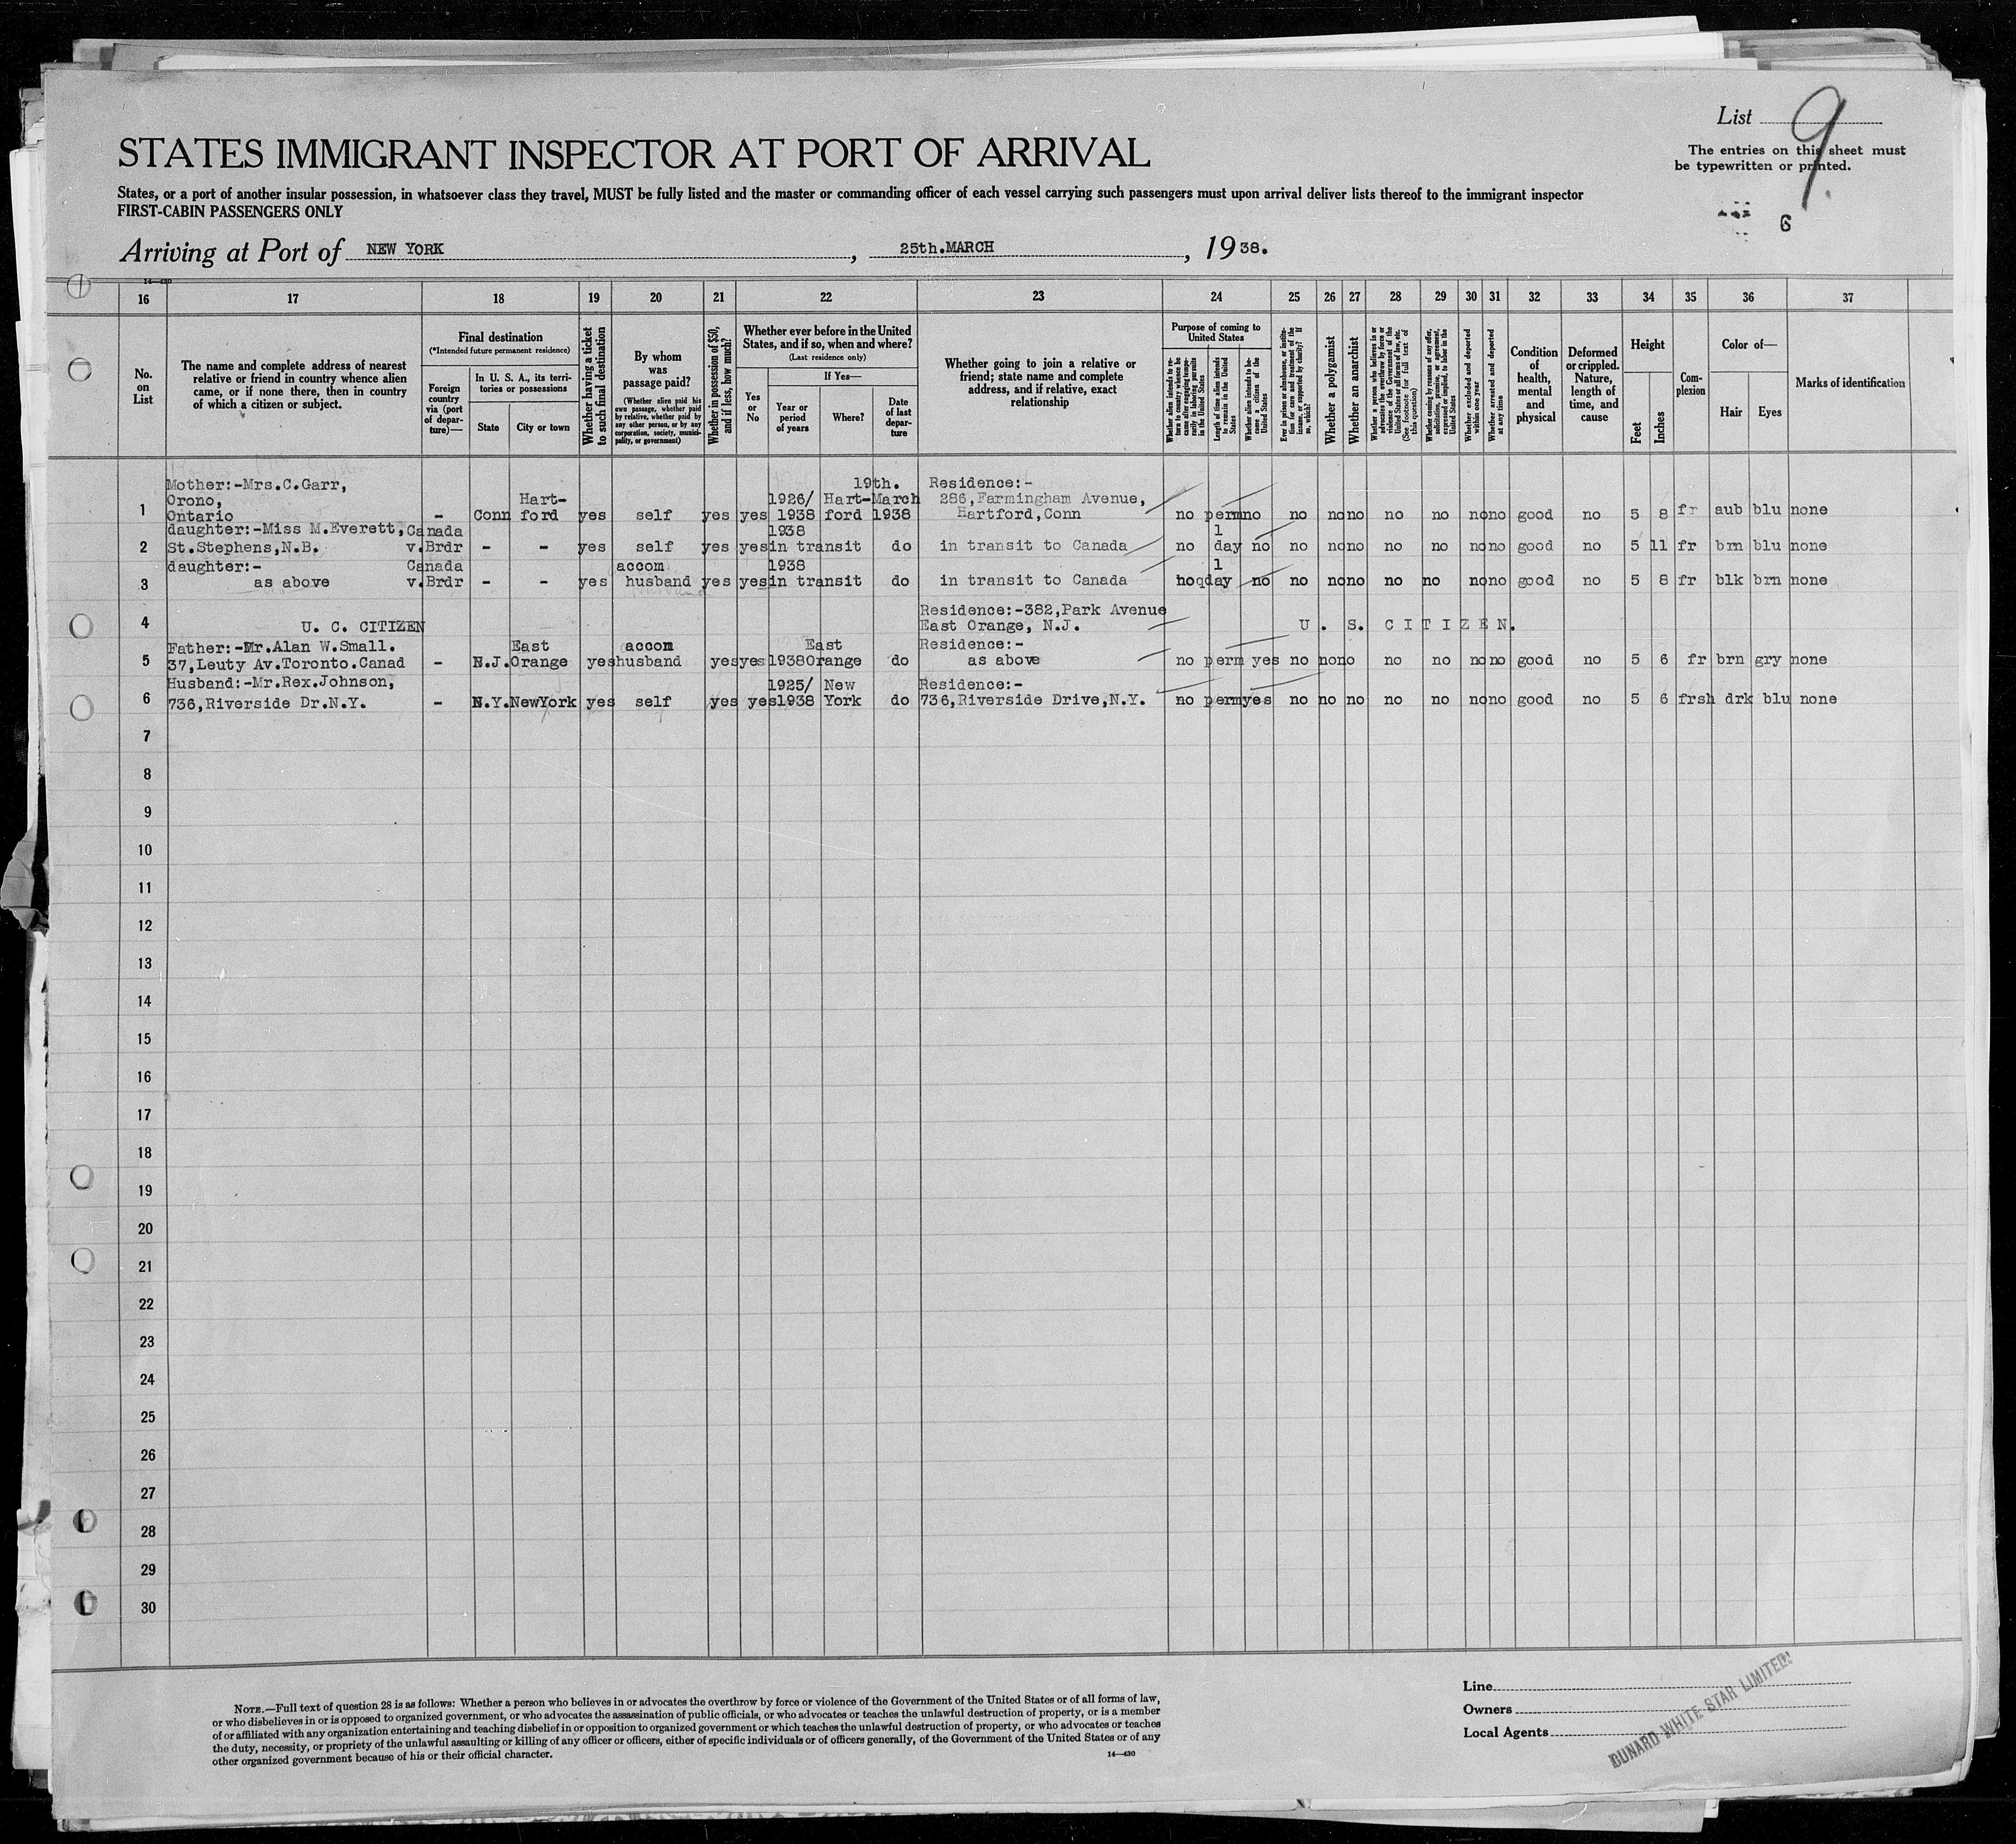 List 9
STATES IMMIGRANT INSPECTOR AT PORT OF ARRIVAL
The entries on this sheet must
be typewritten or printed.
States, or a port of another insular possession, in whatsoever class they travel, MUST be fully listed and the master or commanding officer of each vessel carrying such passengers must upon arrival deliver lists thereof to the immigrant inspector
FIRST-CABIN PASSENGERS ONLY
6
Arriving at Port of NEW YORK, 25th.MARCH, 1938.
14—430
16 17 18 19 20 21 22 23 24 25 26 27 28 29 30 31 32 33 34 35 36 37
No. on List
The name and complete address of nearest relative or friend in country whence alien came, or if none there, then in country of which a citizen or subject.
Final destination
(*Intended future permanent residence)
Foreign country via (port of departure)—
In U. S. A., its territories or possessions
State
City or town
Whether having a ticket to such final destination
By whom was passage paid?
(Whether alien paid his own passage, whether paid by relative, whether paid by any other person, or by any corporation, society, municipality, or government)
Whether in possession of $50, and if less, how much?
Whether ever before in the United States, and if so, when and where?
(Last residence only)
Yes or No
If Yes—
Year or period of years
Where?
Date of last departure
Whether going to join a relative or friend; state name and complete address, and if relative, exact relationship
Purpose of coming to United States
Whether alien intends to return to country whence he came after engaging temporarily in laboring pursuits in the United States
Length of time alien intends to remain in the United States
Whether alien intends to become a citizen of the United States
Ever in prison or almshouse, or institution for care and treatment of the insane, or supported by charity? If so, which?
Whether a polygamist
Whether an anarchist
Whether a person who believes in or advocates the overthrow by force or violence of the Government of the United States or all forms of law, etc. (See footnote for full text of this question)
Whether coming by reason of any offer, solicitation, promise, or agreement, expressed or implied, to labor in the United States
Whether excluded and deported within one year
Whether arrested and deported at any time
Condition of health, mental and physical
Deformed or crippled. Nature, length of time, and cause
Height
Feet
Inches
Complexion
Color of—
Hair
Eyes
Marks of identification
1 Mother:-Mrs.C.Garr, Orono, Ontario - Conn Hart-ford yes self yes yes 1926/1938 Hart-ford 19th. March 1938 Residence:- 286,Farmingham Avenue, Hartford,Conn no perm no no no no no no no no good no 5 8 fr aub blu none
2 daughter:-Miss M.Everett, St.Stephens,N.B. Canada v.Brdr - - yes self yes yes 1938 in transit do in transit to Canada no 1 day no no no no no no no no good no 5 11 fr brn blu none
3 daughter:- as above Canada v.Brdr - - yes accom husband yes yes 1938 in transit do in transit to Canada no 1 day no no no no no no no no good no 5 8 fr blk brn none
4 U. C. CITIZEN Residence:-382,Park Avenue East Orange, N.J. U. S. CITIZEN.
5 Father:-Mr.Alan W.Small. 37,Leuty Av.Toronto.Canad - N.J. East Orange yes accom husband yes yes 1938 East Orange do Residence:- as above no perm yes no no no no no no no good no 5 6 fr brn gry none
6 Husband:-Mr.Rex.Johnson, 736,Riverside Dr.N.Y. - N.Y. NewYork yes self yes yes 1925/1938 New York do Residence:- 736,Riverside Drive,N.Y. no perm yes no no no no no no no good no 5 6 frsh drk blu none
7
8
9
10
11
12
13
14
15
16
17
18
19
20
21
22
23
24
25
26
27
28
29
30
NOTE.—Full text of question 28 is as follows: Whether a person who believes in or advocates the overthrow by force or violence of the Government of the United States or of all forms of law,
or who disbelieves in or is opposed to organized government, or who advocates the assassination of public officials, or who advocates or teaches the unlawful destruction of property, or is a member
of or affiliated with any organization entertaining and teaching disbelief in or opposition to organized government or which teaches the unlawful destruction of property, or who advocates or teaches
the duty, necessity, or propriety of the unlawful assaulting or killing of any officer or officers, either of specific individuals or of officers generally, of the Government of the United States or of any
other organized government because of his or their official character.
14—430
Line
Owners
Local Agents
CUNARD WHITE STAR LIMITED